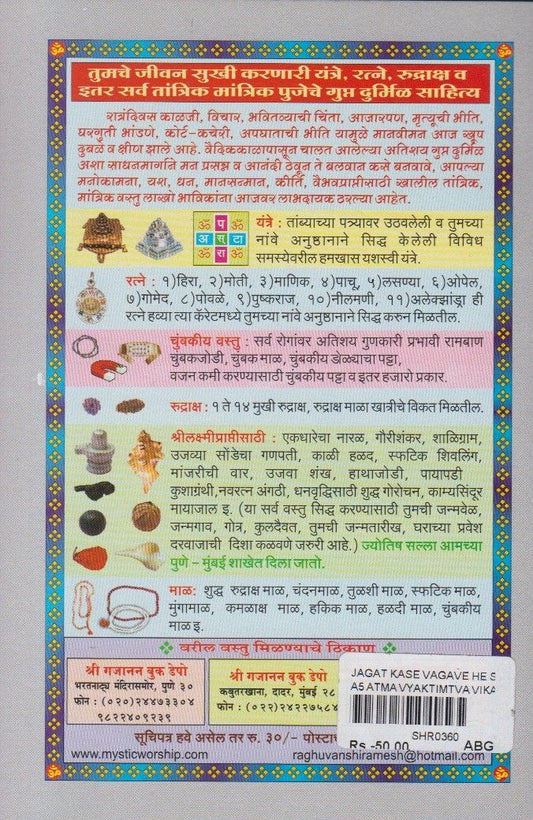 तुमचे जीवन सुखी करणारी यंत्रे, रत्ने, रुद्राक्ष व
इतर सर्व तांत्रिक मांत्रिक पुजेचे गुप्त दुर्मिळ साहित्य
रात्रंदिवस काळजी, विचार, भवितव्याची चिंता, आजारपण, मृत्यूची भीति,
घरगुती भांडणे, कोर्ट-कचेरी, अपघाताची भीति यामुळे मानवीमन आज खूप
दुबळे व क्षीण झाले आहे. वैदिककाळापासून चालत आलेल्या अतिशय गुप्त दुर्मिळ
अशा साधनमार्गाने मन प्रसन्न व आनंदी ठेवून ते बलवान कसे बनवावे, आपल्या
मनोकामना, यश, धन, मानसन्मान, कीर्ति, वैभवप्राप्तीसाठी खालील तांत्रिक,
मांत्रिक वस्तु लाखो भाविकांना आजवर लाभदायक ठरल्या आहेत.
ॐ प ॐ
अ स् टा
ॐ रा ॐ
यंत्रे : तांब्याच्या पत्र्यावर उठवलेली व तुमच्या
नांवे अनुष्ठानाने सिद्ध केलेली विविध
समस्येवरील हमखास यशस्वी यंत्रे.
रत्ने : १)हिरा, २)मोती, ३)माणिक, ४)पाचू, ५)लसण्या, ६)ओपेल,
७)गोमेद, ८)पोवळे, ९)पुष्कराज, १०)नीलमणी, ११)अलेक्झांड्रा ही
रत्ने हव्या त्या कॅरेटमध्ये तुमच्या नांवे अनुष्ठानाने सिद्ध करुन मिळतील.
चुंबकीय वस्तु : सर्व रोगांवर अतिशय गुणकारी प्रभावी रामबाण
चुंबकजोडी, चुंबक माळ, चुंबकीय खेळ्याचा पट्टा,
वजन कमी करण्यासाठी चुंबकीय पट्टा व इतर हजारो प्रकार.
रुद्राक्ष : १ ते १४ मुखी रुद्राक्ष, रुद्राक्ष माळा खात्रीचे विकत मिळतील.
श्रीलक्ष्मीप्राप्तीसाठी : एकधारेचा नारळ, गौरीशंकर, शाळिग्राम,
उजव्या सोंडेचा गणपती, काळी हळद, स्फटिक शिवलिंग,
मांजरीची वार, उजवा शंख, हाथाजोडी, पायापडी
कुशाग्रंथी,नवरत्न अंगठी, धनवृद्धिसाठी शुद्ध गोरोचन, काम्यसिंदूर
मायाजाल इ. (या सर्व वस्तु सिद्ध करण्यासाठी तुमची जन्मवेळ,
जन्मगाव, गोत्र, कुलदैवत, तुमची जन्मतारीख, घराच्या प्रवेश
दरवाजाची दिशा कळवणे जरुरी आहे.) ज्योतिष सल्ला आमच्या
पुणे - मुंबई शाखेत दिला जातो.
माळ: शुद्ध रुद्राक्ष माळ, चंदनमाळ, तुळशी माळ, स्फटिक माळ,
मुंगामाळ, कमळाक्ष माळ, हकिक माळ, हळदी माळ, चुंबकीय
माळ इ.
वरील वस्तु मिळण्याचे ठिकाण
श्री गजानन बुक डेपो
भरतनाट्य मंदिरासमोर, पुणे ३०
फोन : (०२०)२४४७३३०४
९८२२४०९२३९
श्री गजानन बुक डेपो
कबुतरखाना, दादर, मुंबई २८
फोन : (०२२)२४२२७५८४
JAGAT KASE VAGAVE HE S
A5 ATMA VYAKTIMTVA VIKA
SHR0360
Rs -50.00 ABG
सूचिपत्र हवे असेल तर रु. ३०/-
www.mysticworship.com raghuvanshiramesh@hotmail.com